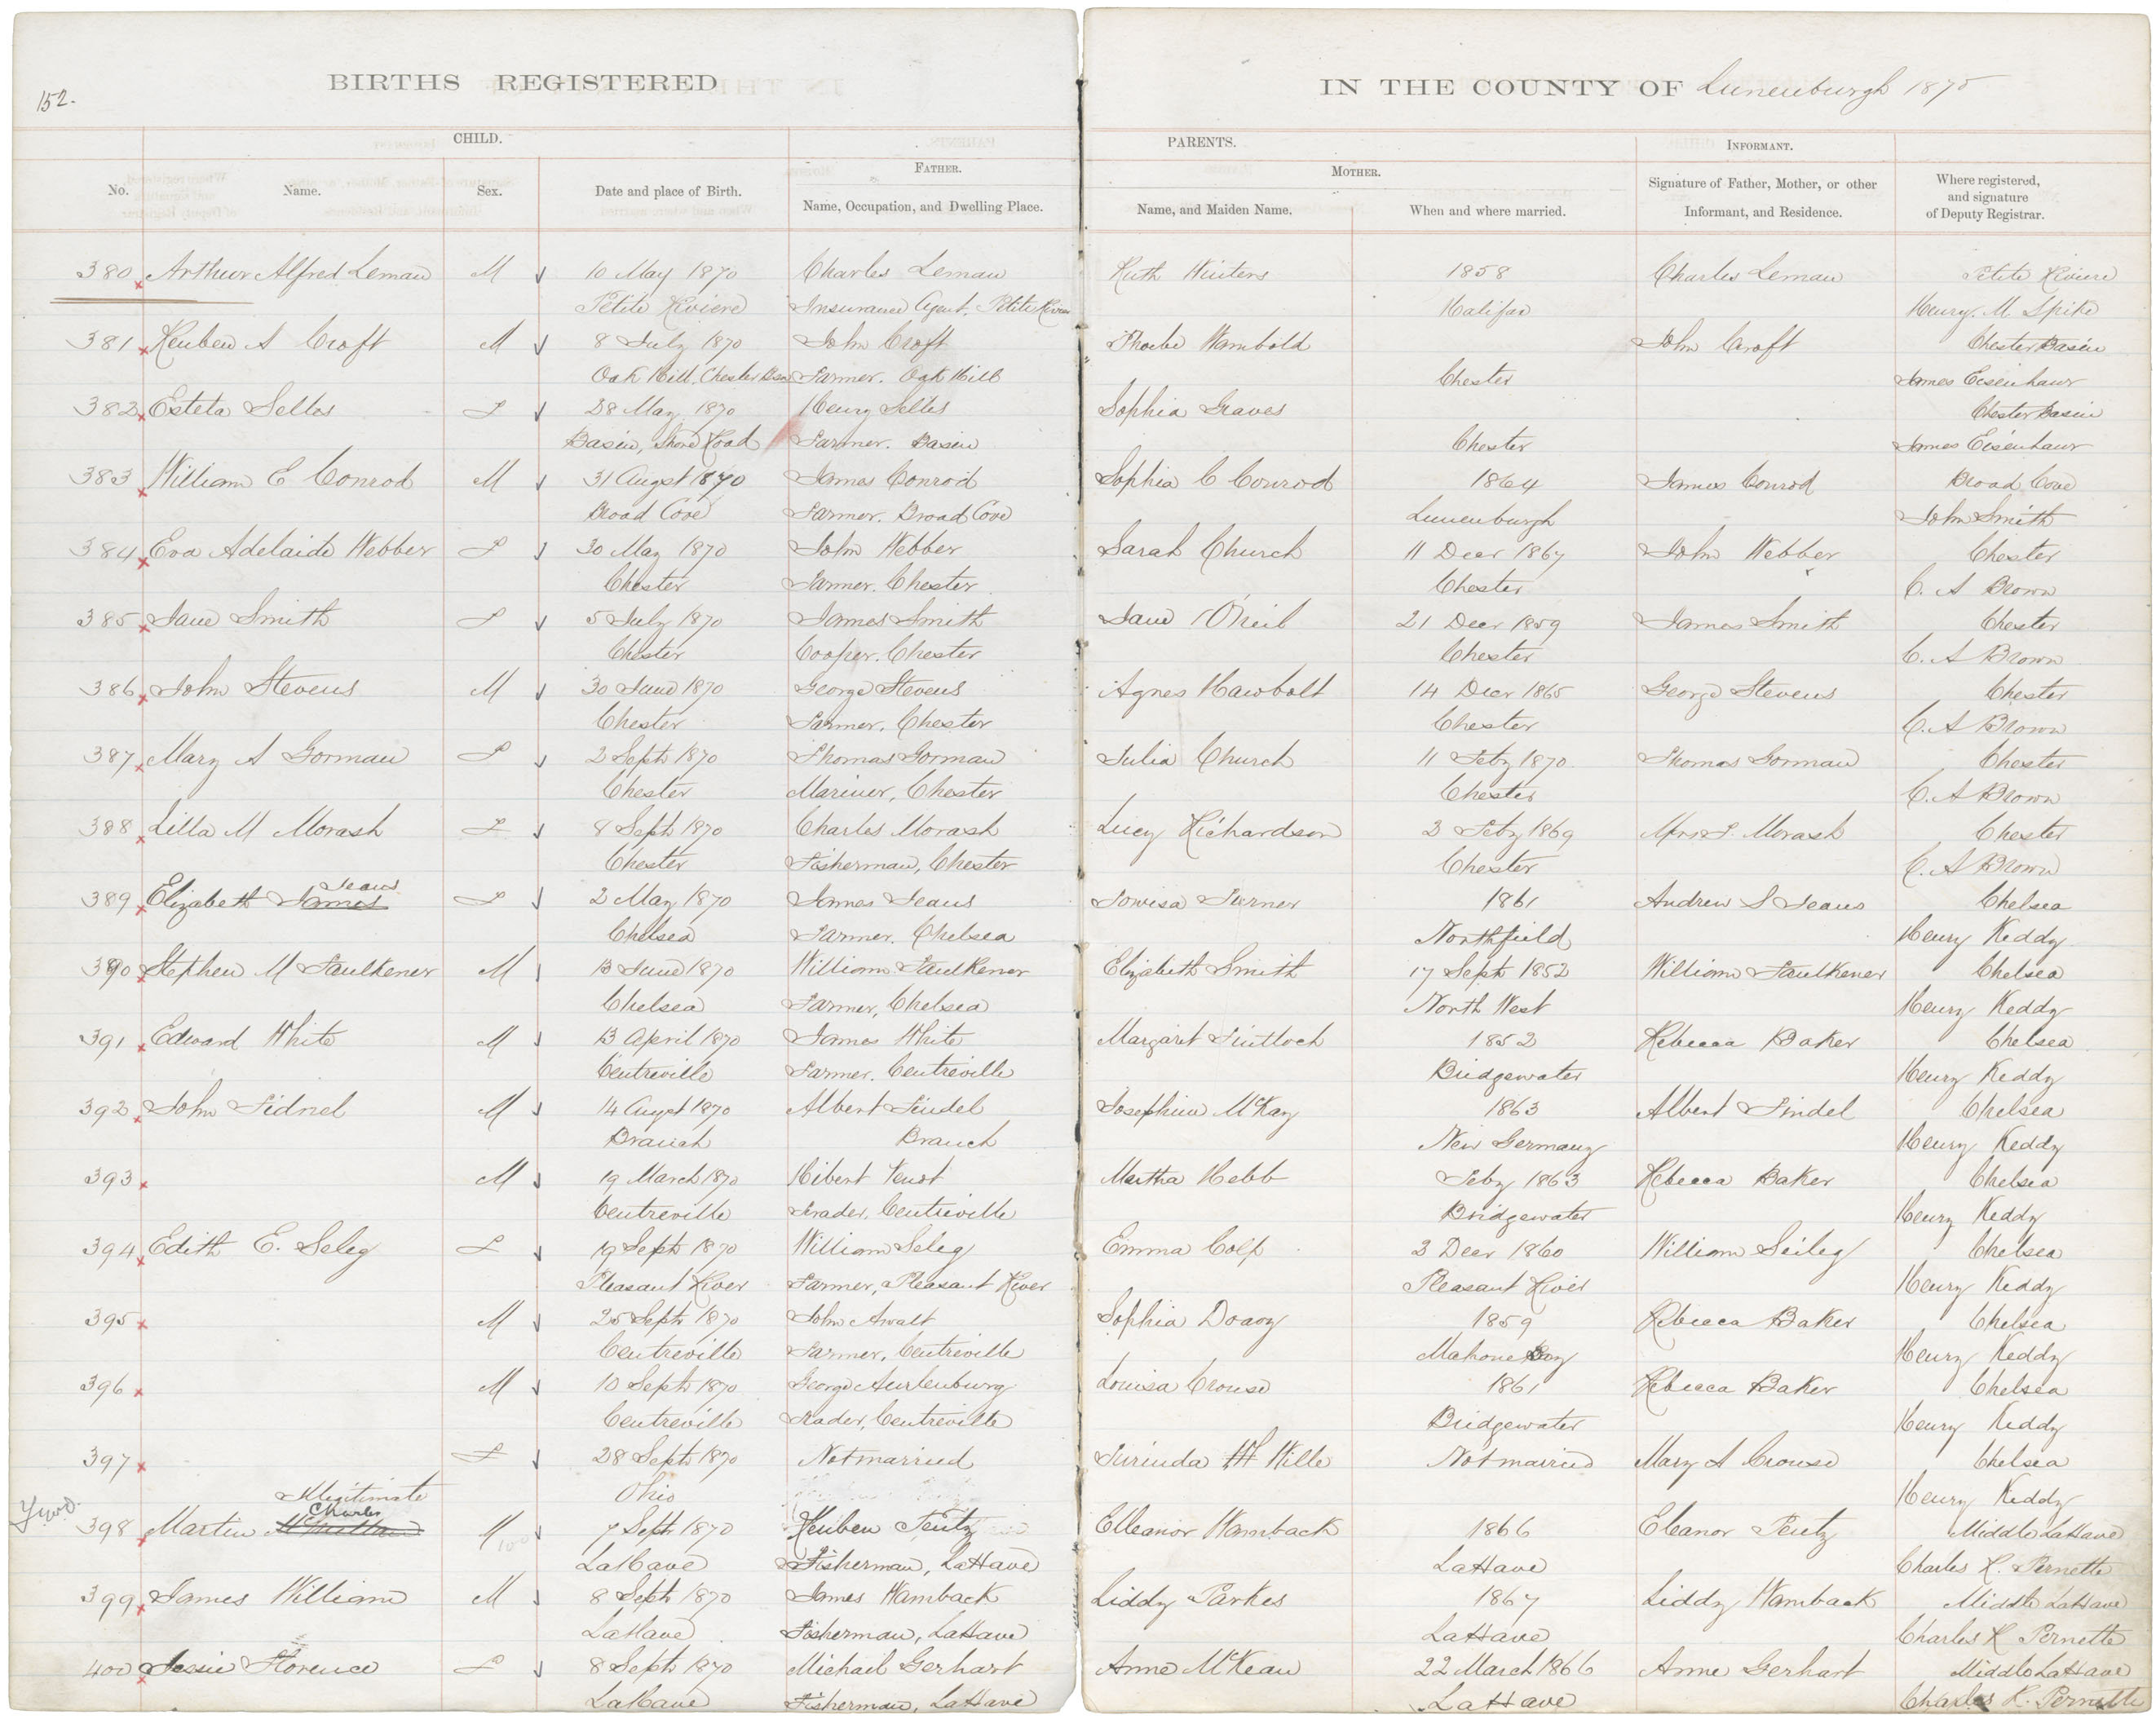 152.
BIRTHS REGISTERED
IN THE COUNTY OF Lunenburgh 1870
CHILD.
PARENTS.
INFORMANT.
FATHER.
MOTHER.
No.
Name.
Sex.
Date and place of Birth.
Name, Occupation, and Dwelling Place.
Name, and Maiden Name.
When and where married.
Signature of Father, Mother, or other
Informant, and Residence.
Where registered,
and signature
of Deputy Registrar.
380 Arthur Alfred Leman M 10 May 1870 Charles Leman Ruth Winters 1858 Charles Leman Petite Riviere
Petite Riviere Insurance Agent, Petite Riviere Halifax Henry. M. Spike
381 Reuben A Croft M 8 July 1870 John Croft Phoebe Wambold John Croft Chester Basin
Oak Hill, Chester Basin Farmer. Oak Hill Chester James Eisenhaur
382 Esteta Selles F 28 May 1870 Henry Selles Sophia Graves Chester Basin
Basin, Shore Road Farmer. Basin Chester James Eisenhaur
383 William E Conrod M 31 Augst 1870 James Conrod Sophia C Conrod 1864 James Conrod Broad Cove
Broad Cove Farmer. Broad Cove Lunenburgh John Smith
384 Eva Adelaide Webber F 30 May 1870 John Webber Sarah Church 11 Decr 1867 John Webber Chester
Chester Farmer. Chester Chester C. A Brown
385 Jane Smith F 5 July 1870 James Smith Jane O'Neil 21 Decr 1859 James Smith Chester
Chester Cooper. Chester Chester C. A Brown
386 John Stevens M 30 June 1870 George Stevens Agnes Hawbolt 14 Decr 1865 George Stevens Chester
Chester Farmer, Chester Chester C. A Brown
387 Mary A Gorman F 2 Sept 1870 Thomas Gorman Julia Church 11 Feby 1870 Thomas Gorman Chester
Chester Mariner, Chester Chester C. A Brown
388 Lilla M Morash F 8 Sept 1870 Charles Morash Lucy Richardson 3 Feby 1869 Mrs F. Morash Chester
Chester Fisherman, Chester Chester C. A Brown
Jeans
389 Elizabeth James F 2 May 1870 James Jeans Lowisa Turner 1861 Andrew S Jeans Chelsea
Chelsea Farmer. Chelsea Northfield Henry Keddy
390 Stephen M Faulkener M 13 June 1870 William Faulkener Elizabeth Smith 17 Sept 1852 William Faulkener Chelsea
Chelsea Farmer, Chelsea North West Henry Keddy
391 Edward White M 13 April 1870 James White Margaret Tintloch 1852 Rebecca Baker Chelsea
Centreville Farmer. Centreville Bridgewater Henry Keddy
392 John Fidnel M 14 Augst 1870 Albert Findel Josephine McKay 1863 Albert Findel Chelsea
Branch Branch New Germany Henry Keddy
393 M 19 March 1870 Hibert Venot Martha Hebb Feby 1863 Rebecca Baker Chelsea
Centreville Trader, Centreville Bridgewater Henry Keddy
394 Edith E. Seleg F 19 Sept 1870 William Seleg Emma Colp 3 Decr 1860 William Seileg Chelsea
Pleasant River Farmer, Pleasant River Pleasant River Henry Keddy
395 M 25 Sept 1870 John Awalt Sophia Doary 1859 Rebecca Baker Chelsea
Centreville Farmer, Centreville Mahone Bay Henry Keddy
396 M 10 Sept 1870 George Aurlenburg Louisa Crouse 1861 Rebecca Baker Chelsea
Centreville Trader, Centreville Bridgewater Henry Keddy
397 F 28 Sept 1870 Not married Wille Not married Mary A Crouse Chelsea
Illegitimate Ohio Henry Keddy
Charles
398 Martin M 7 Sept 1870 Reuben Teutz Elleanor Wamback 1866 Eleanor Teutz Middle LaHave
LaHave Fisherman, LaHave LaHave Charles R. Pernette
399 James William M 8 Sept 1870 James Wamback Liddy Parkes 1867 Liddy Wamback Middle LaHave
LaHave Fisherman, LaHave LaHave Charles R Pernette
400 Jessie Florence F 8 Sept 1870 Michael Gerhart Anne McKean 22 March 1866 Anne Gerhart Middle LaHave
LaHave Fisherman, LaHave LaHave Charles R. Pernette